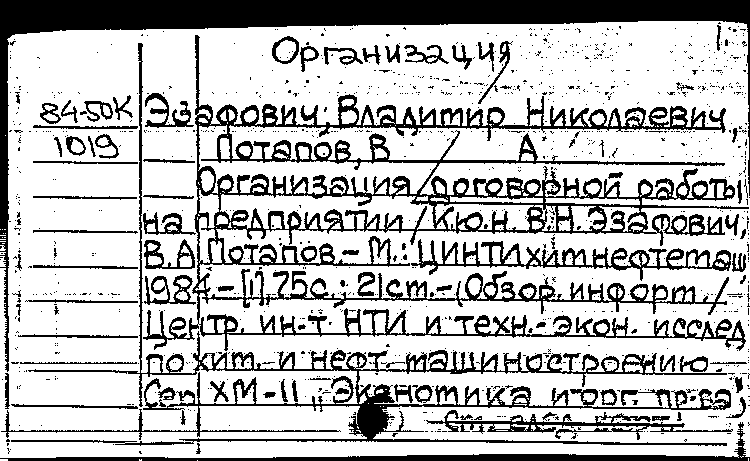 Организация
84-50К Эзафович, Владимир Николаевич,
1019 Потапов, В А
Организация договорной работы
на предприятии / К.ю.н. В.Н. Эзафович,
В.А. Потапов. – М.: ЦИНТИхимнефтемаш,
1984. – [1], 75 с.; 21 см. – (Обзор. информ. /
Центр. ин-т НТИ и техн.-экон. исслед
по хим. и нефт. машиностроению.
Сер ХМ-11, "Экономика и орг. пр-ва"
) См. след. карт.